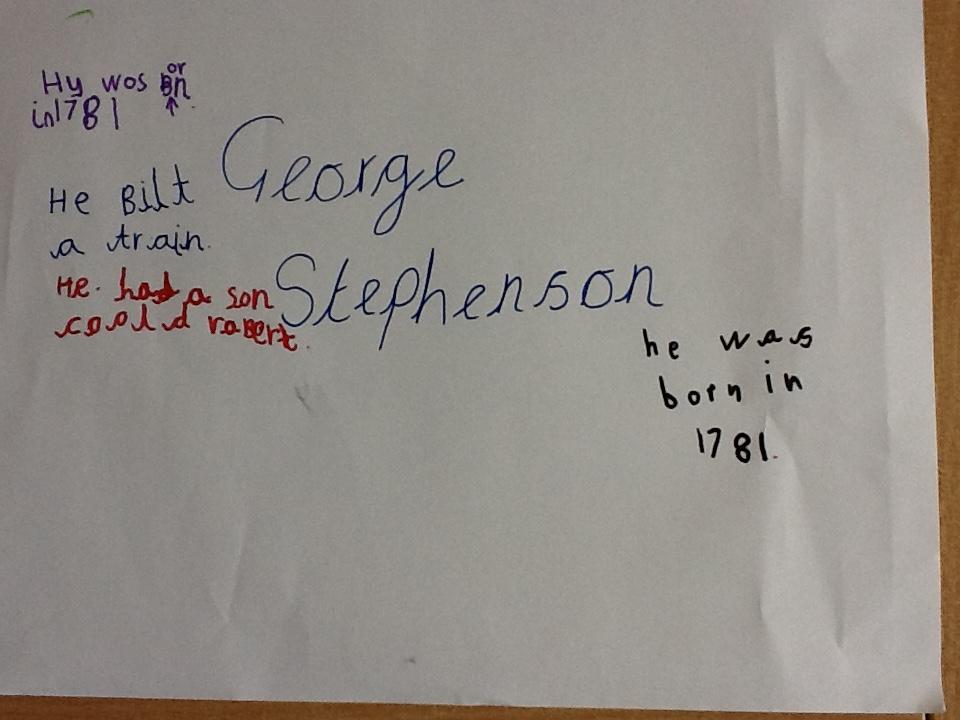 Hy wos Born
in 1781
George
He Bilt
a train.
He had a son
coold robert.
Stephenson
he was
born in
1781.